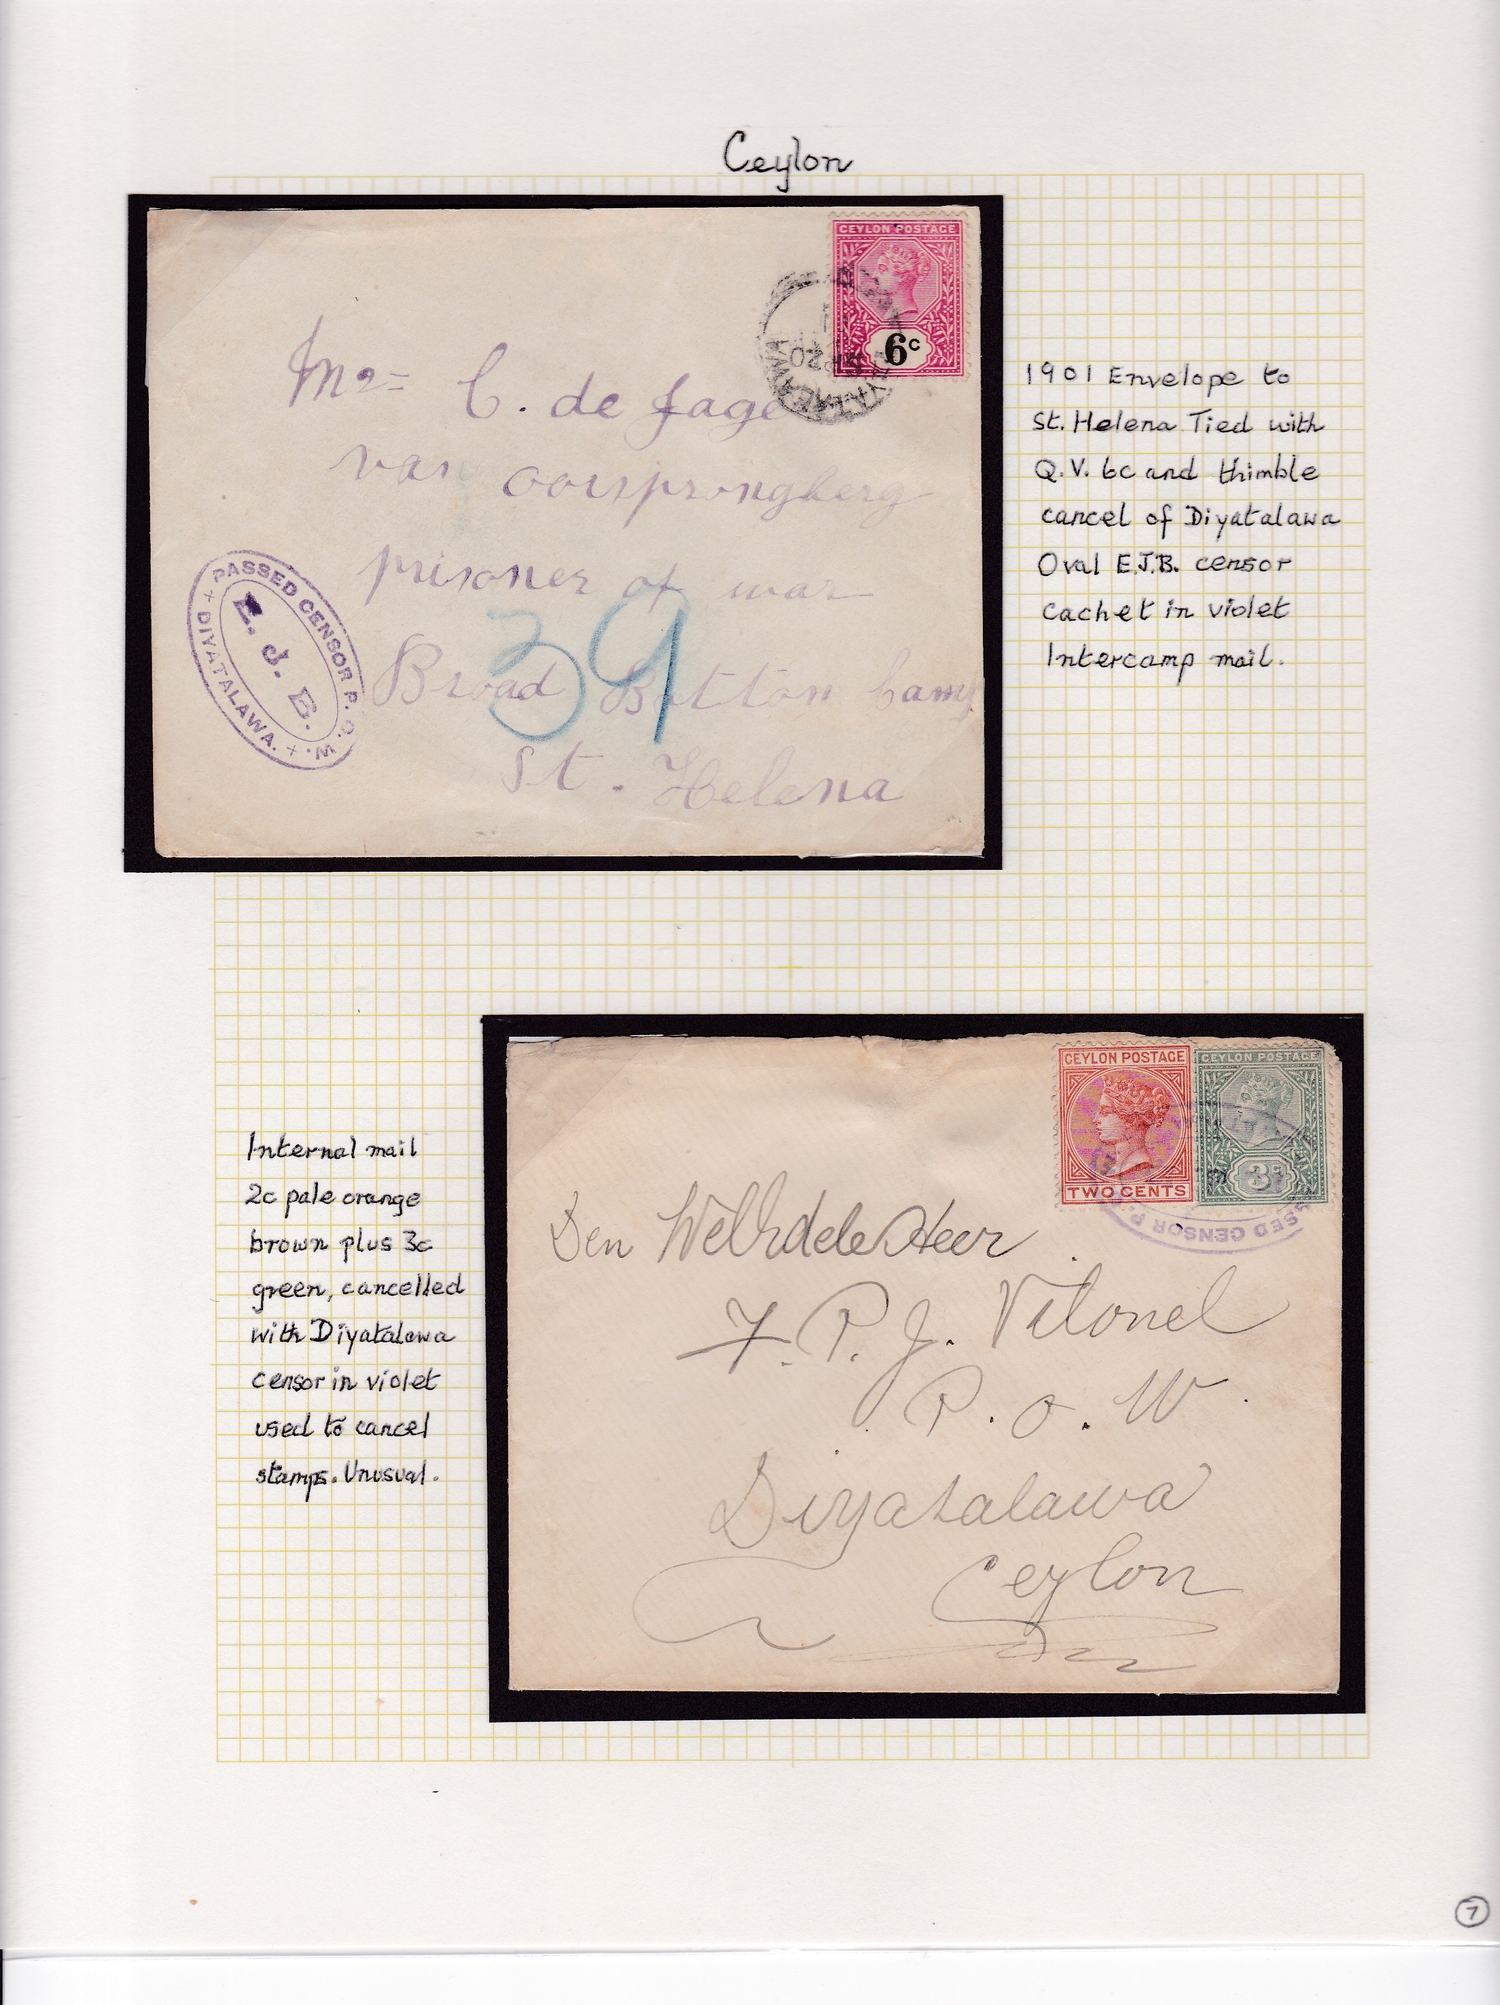 Ceylon
CEYLON POSTAGE
6c
Mr= C. de Jage
van oorsprongberg
prisoner of war
39
Broad Bottom Camp
St. Helena
PASSED CENSOR P. O. W.
E. J. B.
+ DIYATALAWA. +
1901 Envelope to
St. Helena Tied with
Q.V. 6c and thimble
cancel of Diyatalawa
Oval E.J.B. censor
cachet in violet
Intercamp mail.
CEYLON POSTAGE
TWO CENTS
CEYLON POSTAGE
3c
SSED CENSOR P.
Den WelEdele Heer
F. P. J. Vilonel
P. o. W.
Diyatalawa
Ceylon
Internal mail
2c pale orange
brown plus 3c
green, cancelled
with Diyatalawa
censor in violet
used to cancel
stamps. Unusual.
7